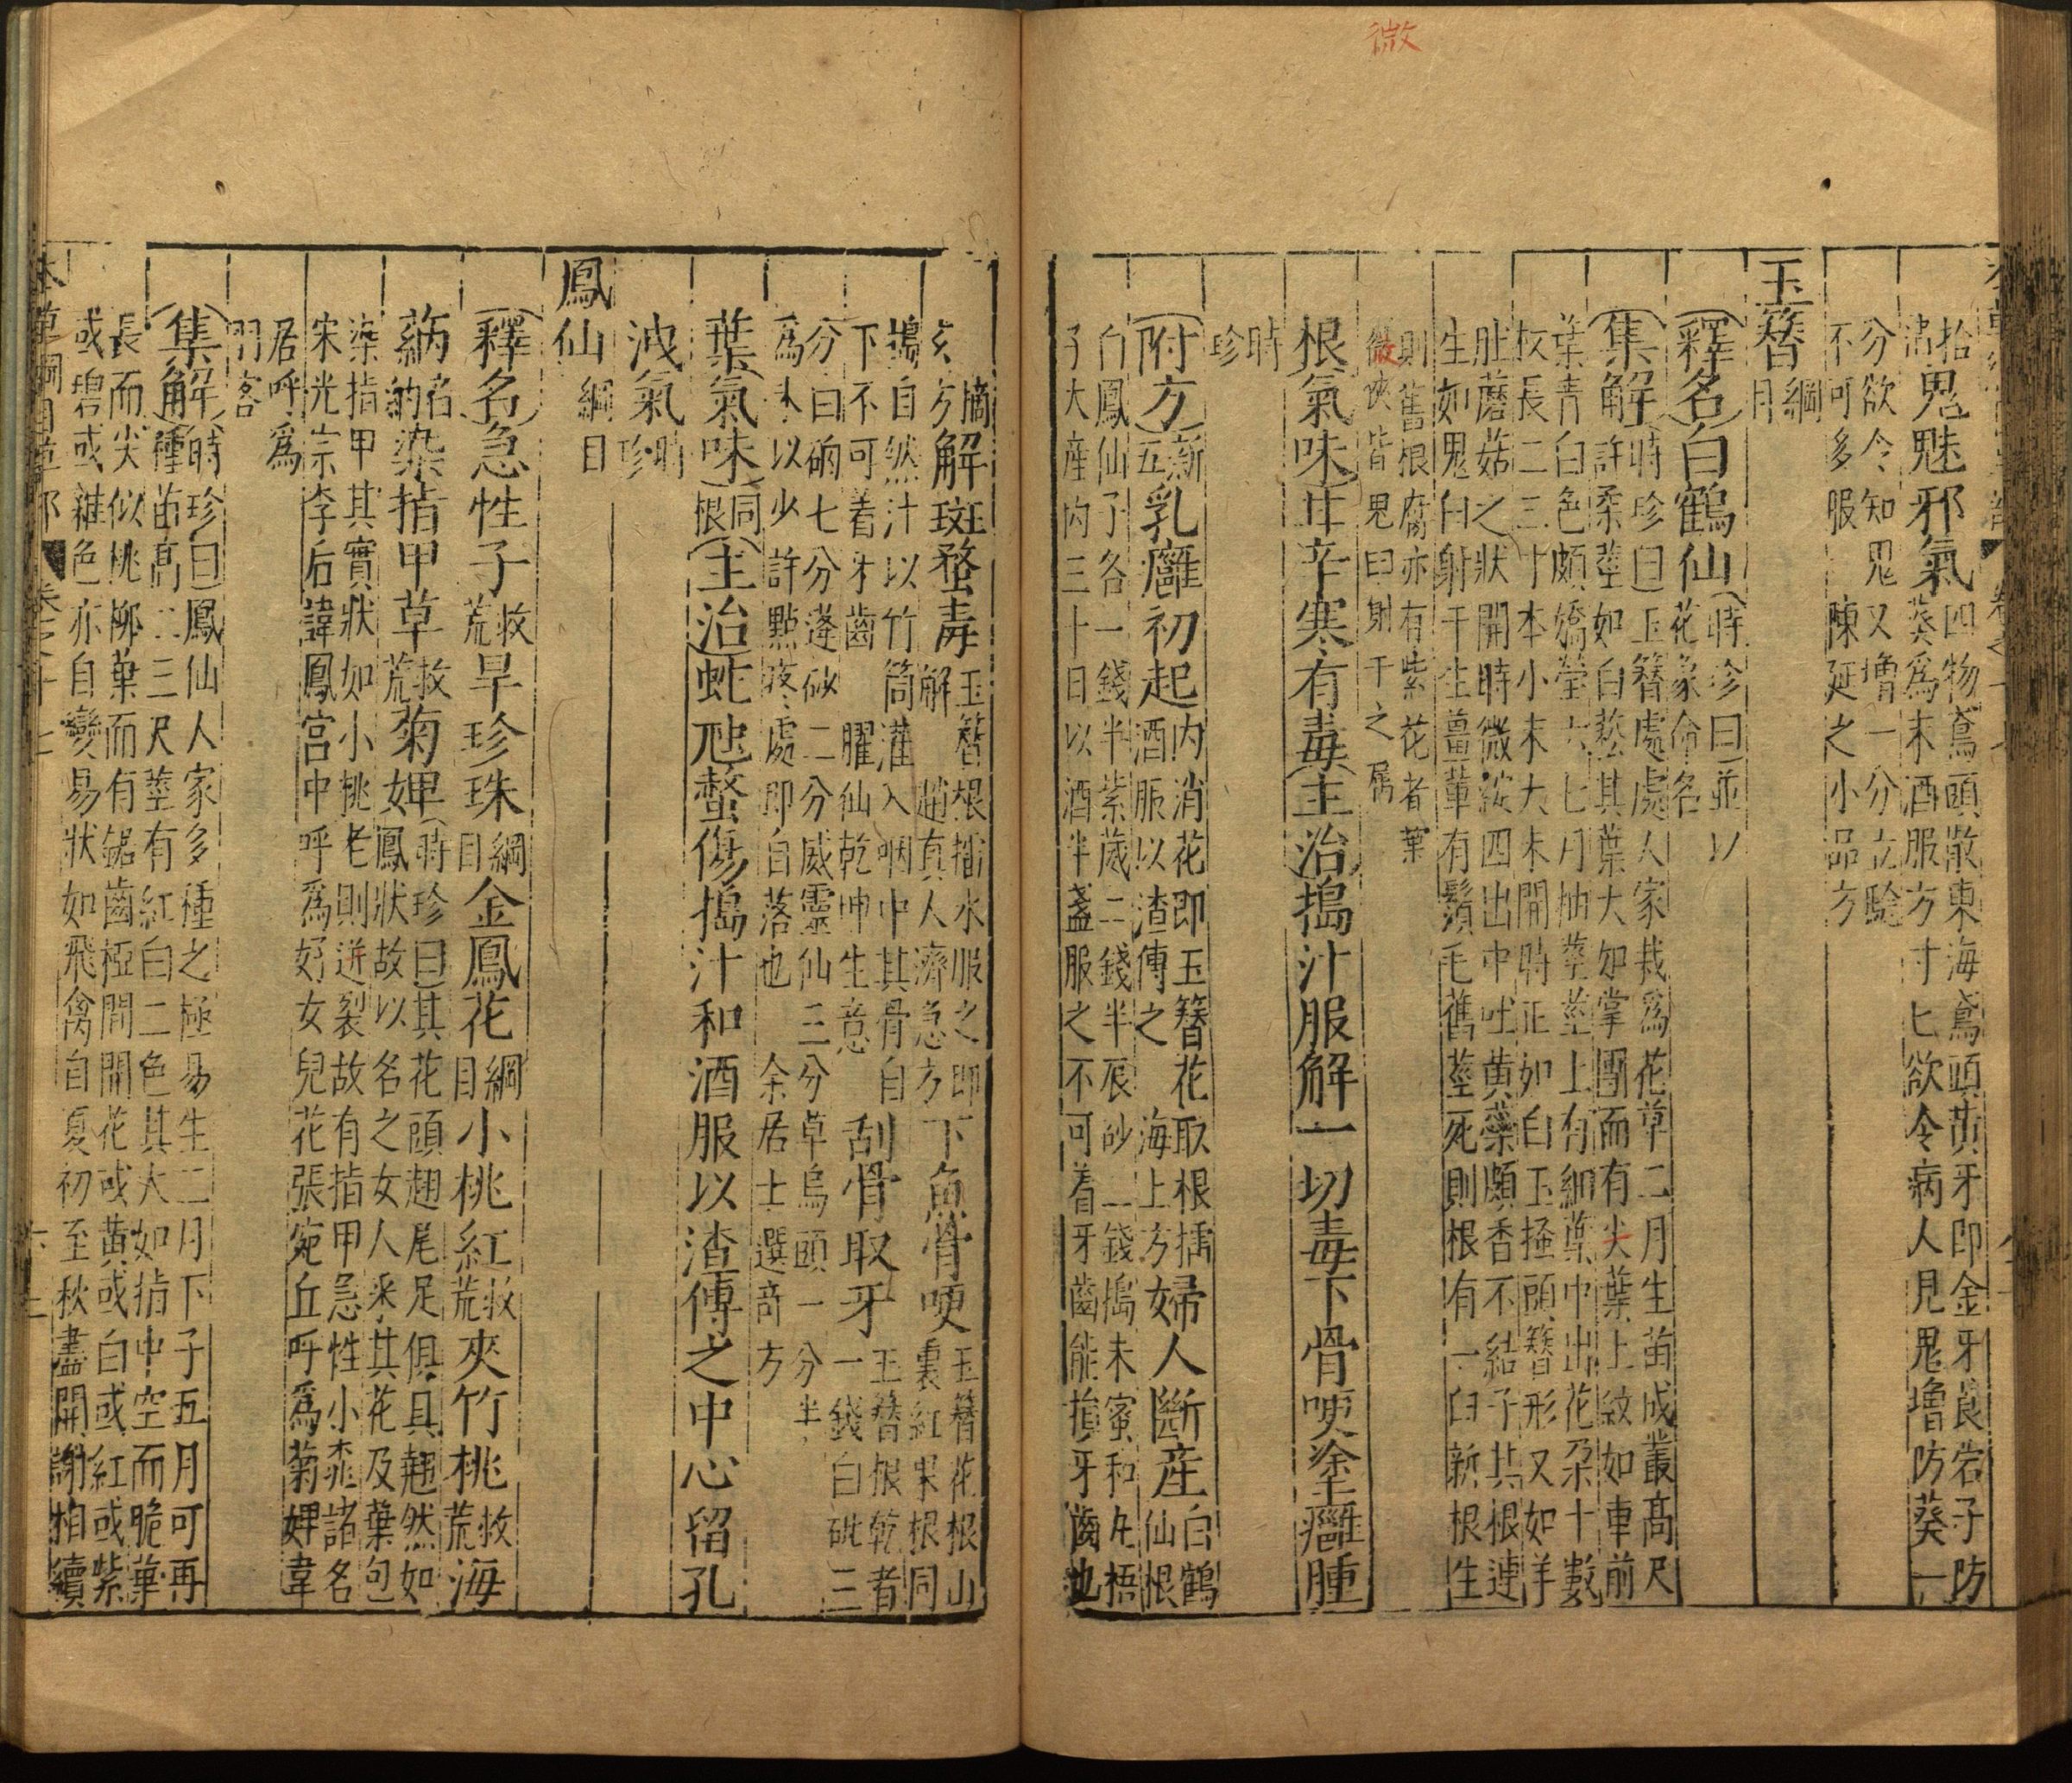 微
拾鬼魅邪氣四物鳶頭散東海鳶頭黃牙即金牙莨菪子防
葵爲末酒服方寸匕欲令病人見鬼增防葵一
分欲令知鬼又增一分立驗
不可多服 陳延之小品方
玉簪綱目
(釋名)白鶴仙(時珍曰)並以
花象命名
(集解)(時珍曰)玉簪處處人家栽爲花草二月生苗成叢高尺
許柔莖如白菘其葉大如掌團而有尖葉上紋如車前
葉青白色頗嬌瑩六七月抽莖莖上有細葉中出花朶十數
枚長二三寸本小末大未開時正如白玉搔頭簪形又如羊
肚蘑菇之狀開時微綻四出中吐黃蘂頗香不結子其根連
生如鬼臼射干生薑軰有鬚毛舊莖死則根有一臼新根生
則舊根腐亦有紫花者葉
微狹皆鬼臼射干之屬
根(氣味)甘辛寒有毒(主治)搗汁服解一切毒下骨哽塗癰腫
時
珍
(附方)新五乳癰初起內消花即玉簪花取根擂
酒服以渣傅之 海上方婦人斷産白鶴
仙根
白鳳仙子各一錢半紫葳二錢半辰砂一錢搗末蜜和丸梧
子大産內三十日以酒半盞服之不可着牙齒能損牙齒也
摘
玄方解斑蝥毒玉簪根擂水服之即
解 趙真人濟急方下魚骨哽玉簪花根山
裏紅果根同
搗自然汁以竹筒灌入咽中其骨自
下不可着牙齒 臞仙乾坤生意刮骨取牙玉簪根乾者
一錢白砒三
分白硇七分蓬砂二分威靈仙三分草烏頭一分半
爲末以少許點疼處即自落也 余居士選奇方
葉(氣味)同
根(主治)蛇虺螫傷搗汁和酒服以渣傅之中心留孔
洩氣時
珍
鳳仙綱目
(釋名)急性子救
荒旱珍珠綱
目金鳳花綱
目小桃紅救
荒夾竹桃救
荒海
蒳音
納染指甲草救
荒菊婢(時珍曰)其花頭翅尾足俱具翹然如
鳳狀故以名之女人采其花及葉包
染指甲其實狀如小桃老則迸裂故有指甲急性小桃諸名
宋光宗李后諱鳳宮中呼爲好女兒花張宛丘呼爲菊婢韋
居呼爲
羽客
(集解)(時珍曰)鳳仙人家多種之極易生二月下子五月可再
種苗高二三尺莖有紅白二色其大如指中空而脆葉
長而尖似桃柳葉而有鋸齒椏間開花或黃或白或紅或紫
或碧或雜色亦自變易狀如飛禽自夏初至秋盡開謝相續